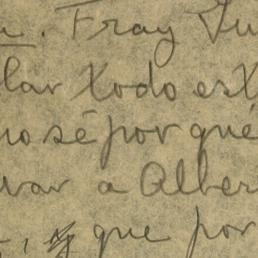 . Fray Ju
lar Xodo esX
no sé por qué
var a Alber
, y que por